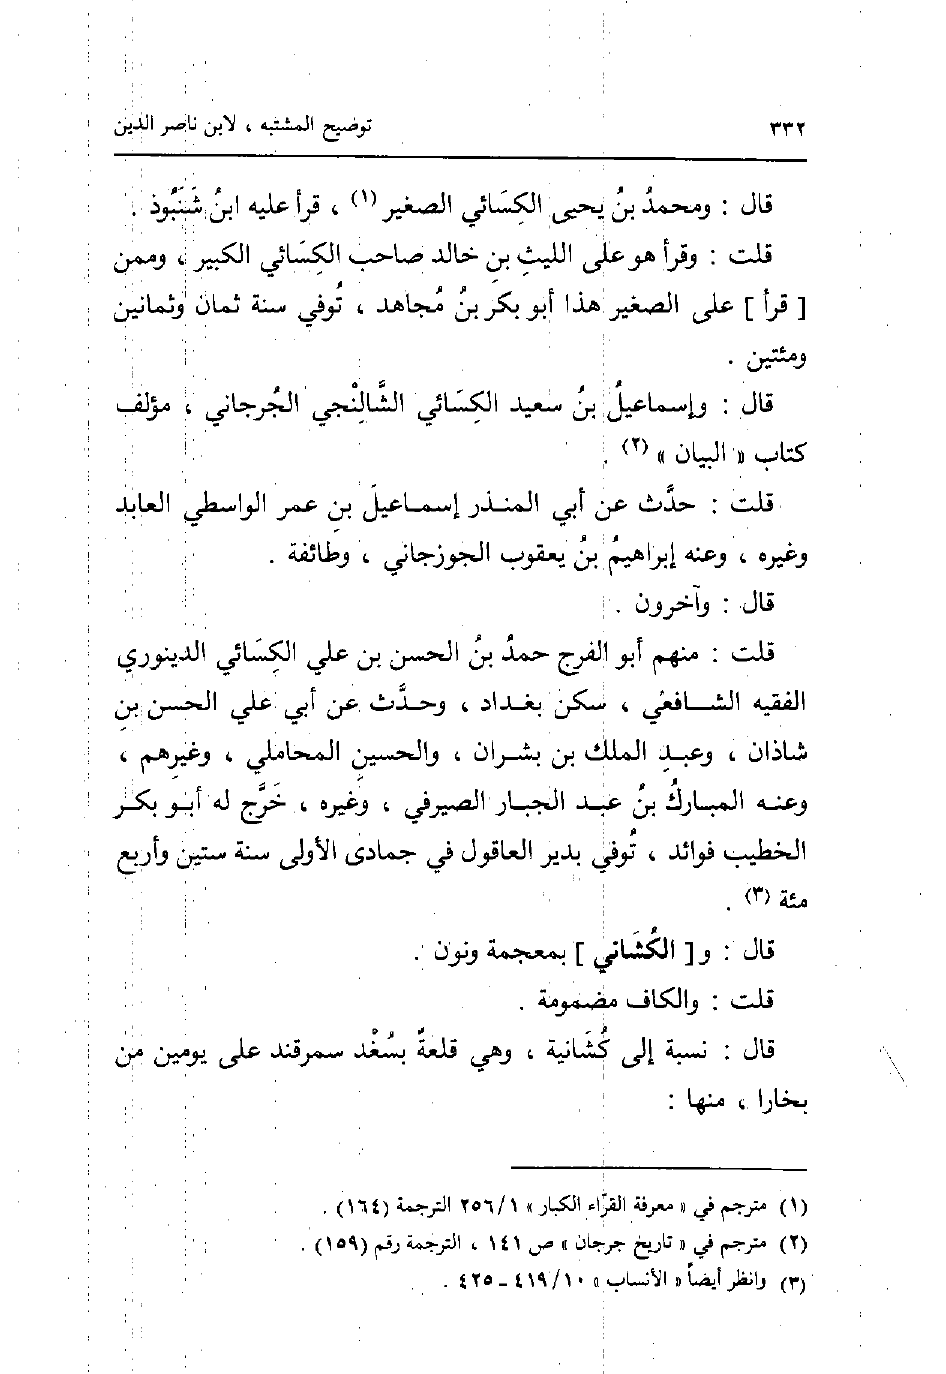 ٣٣٢ توضيح المشتبه ، لابن ناصر الدين
قال : ومحمدُ بنُ يحيى الكِسَائي الصغير (١) ، قرأ عليه ابنُ شَنَبُوذ .
قلت : وقرأ هو على الليثِ بنِ خالد صاحب الكِسَائي الكبير ، وممن
[ قرأ ] على الصغير هذا أبو بكر بنُ مُجاهد ، تُوفي سنة ثمان وثمانين
ومئتين .
قال : وإسماعيلُ بنُ سعيد الكِسَائي الشَّالَنْجي الجُرجاني ، مؤلف
كتاب « البيان » (٢) .
قلت : حدَّث عن أبي المنذر إسماعيلَ بنِ عمر الواسطي العابد
وغيره ، وعنه إبراهيمُ بنُ يعقوب الجوزجاني ، وطائفة .
قال : وآخرون .
قلت : منهم أبو الفرج حمدُ بنُ الحسن بن علي الكِسَائي الدينوري
الفقيه الشافعي ، سكن بغداد ، وحدَّث عن أبي علي الحسن بنِ
شاذان ، وعبدِ الملك بن بشران ، والحسينِ المحاملي ، وغيرِهم ،
وعنه المباركُ بنُ عبد الجبار الصيرفي ، وغيره ، خَرَّج له أبو بكر
الخطيب فوائد ، تُوفي بدير العاقول في جمادى الأولى سنة ستين وأربع
مئة (٣) .
قال : و [ الكُشَاني ] بمعجمة ونون .
قلت : والكاف مضمومة .
قال : نسبة إلى كُشَانية ، وهي قلعةٌ بسُغْد سمرقند على يومين من
بخارا ، منها :
(١) مترجم في « معرفة القرّاء الكبار » ٢٥٦/١ الترجمة (١٦٤) .
(٢) مترجم في « تاريخ جرجان » ص ١٤١ ، الترجمة رقم (١٥٩) .
(٣) وانظر أيضاً « الأنساب » ٤١٩/١٠ ـ ٤٢٥ .